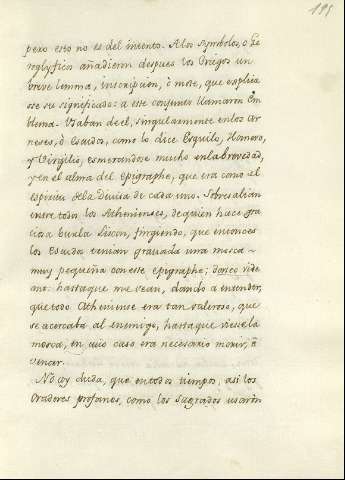 195
pero esto no es del intento. A los Symbolos, o Ge
roglyficos añadieron despues los Griegos un
breve lemma, inscripcion, ò mote, que explica
sse su significado: a este conjunto llamaron Em
blema. Usaban de el, singularmente en los Ar
neses, ò Escudos, como lo dice Esquilo, Homero,
y Virgilio, esmerandose mucho en la brevedad,
y en el alma del Epigraphe, que era como el
espiritu de la Divisa de cada uno. Sobresalian
entre todos los Athenienses, de quien hace gra
ciosa burla fingiendo, que entonces
los Escudos tenian gravada una mosca
muy pequeña con este epigraphe;
hasta que me vean, dando a entender,
que todo Atheniense era tan valeroso, que
se acercaba al enemigo, hasta que viesse la
mosca, en cuio caso era necesario morir, ò
vencer.
No ay duda, que en todos tiempos, assi los
Oradores profanos, como los Sagrados usaron